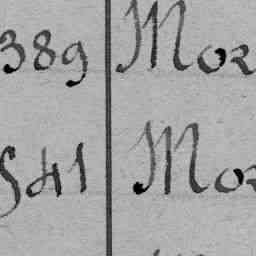 389 Mor
541 Mor